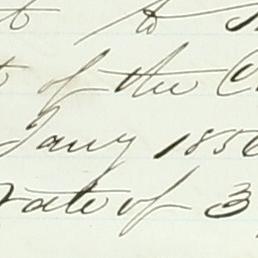 to
of the
Jany 185
rate of 3